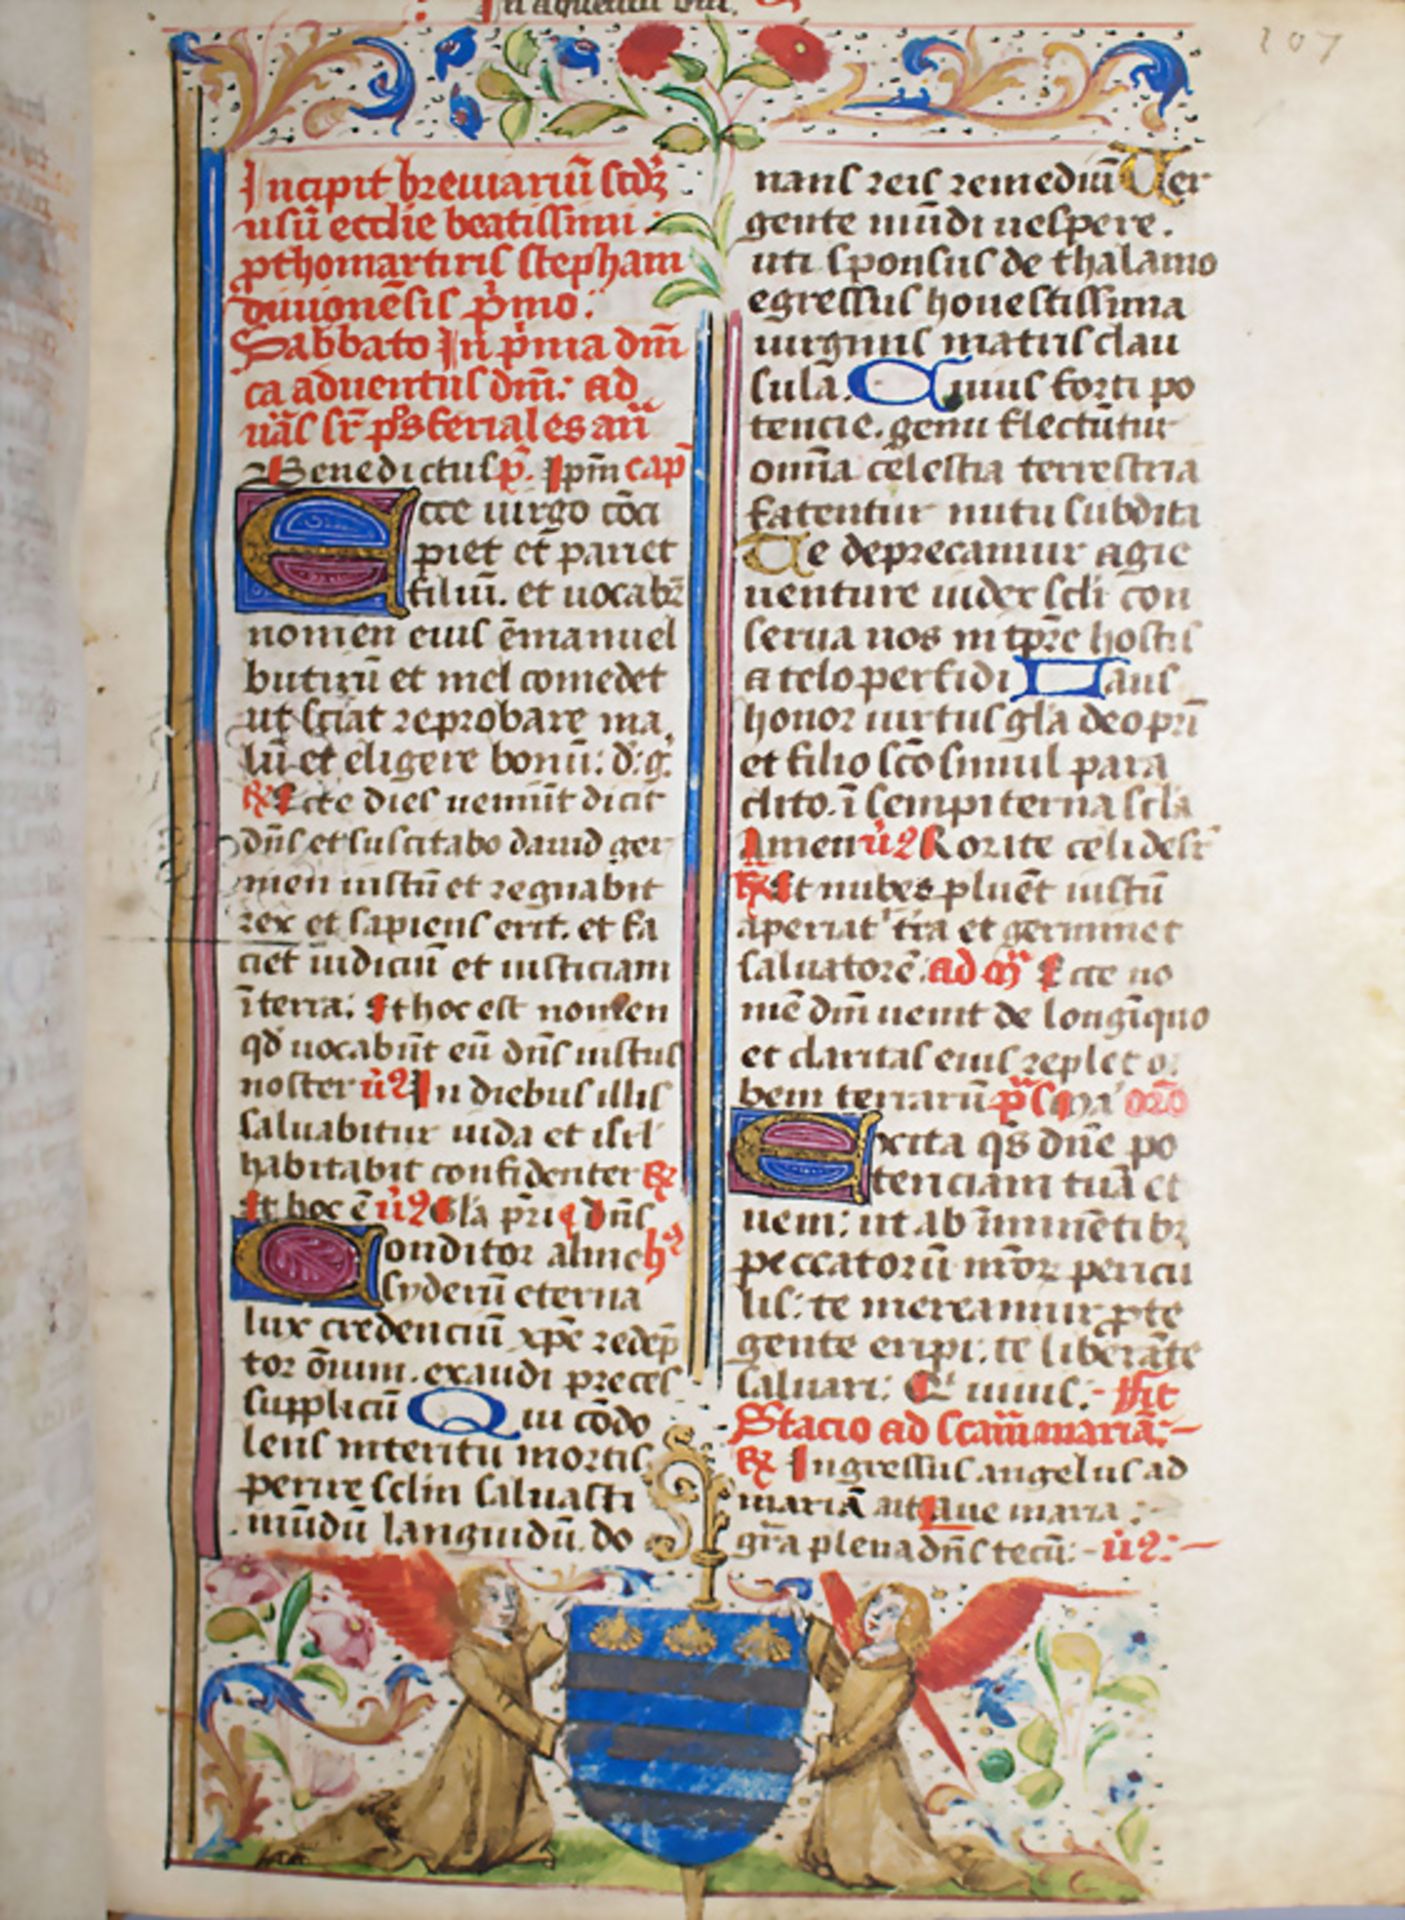 In aduentu dni.
207
Incipit breuiariū scdȝ
usū ecclie beatissimi
ꝓthomartiris stephani
diuionēsis p̄mo:
Sabbato In p̄ma dnī
ca aduentus dnī: ad
uās sr̄ pōs feriales an̄
Benedictus p̄. Ipm̄ cap̄
Ecce uirgo cōci
piet et pariet
filiū. et uocabr̄
nomen eius ēmanuel
butirū et mel comedet
ut sciat reprobare ma
lū et eligere bonū: d: g.
℟ Ecce dies ueniūt dicit
dn̄s et suscitabo dauid ger
men iustū et regnabit
rex et sapiens erit. et fa
ciet iudiciū et iusticiam
ī terra: Et hoc est nomen
qd̄ uocabūt eū dn̄s iustus
noster v̄ In diebus illis
saluabitur iuda et isrl̄
habitabit confidenter ℟
Et hoc ē v̄ Gl̄a pri dn̄s
Conditor alme hȳ
syderū eterna
lux credenciū xp̄e redēp
tor ōium. exaudi preces
supplicū Qui cōdo
lens interitu mortis
perire sclm saluasti
mūdū languidū. do
nans reis remediū Uer
gente mūdi uespere.
uti sponsus de thalamo
egressus honestissima
uirginis matris clau
sulā. Cuius forti po
tencie. genu flectūtur
omīa celestia terrestria
fatentur nutu subdita
Te deprecamur agie
uenture iudex scli con
serua nos in tp̄re hostis
a telo perfidi Laus
honor uirtus gl̄a deo pr̄i
et filio scō simul para
clito. ī sempiterna scl̄a
Amen v̄ Rorate celi desr̄
℟ Et nubes pluēt iustū
aperiat' tr̄a et germinet
saluatorē. ad m̄ Ecce no
mē dnī uenit de longīquo
et claritas eius replet or
bem terrarū p̄s mā orō
Excita qs̄ dn̄e po
tenciam tuā et
ueni: ut ab īminētibȝ
peccatorū nr̄oꝝ pericu
lis: te mereamur ꝓte
gente eripi: te liberāte
saluari: Qui uiuis: fit
Stacio ad scām mariā:
℟ Ingressus angelus ad
mariā ait Aue maria
gr̄a plena dn̄s tecū: v̄: